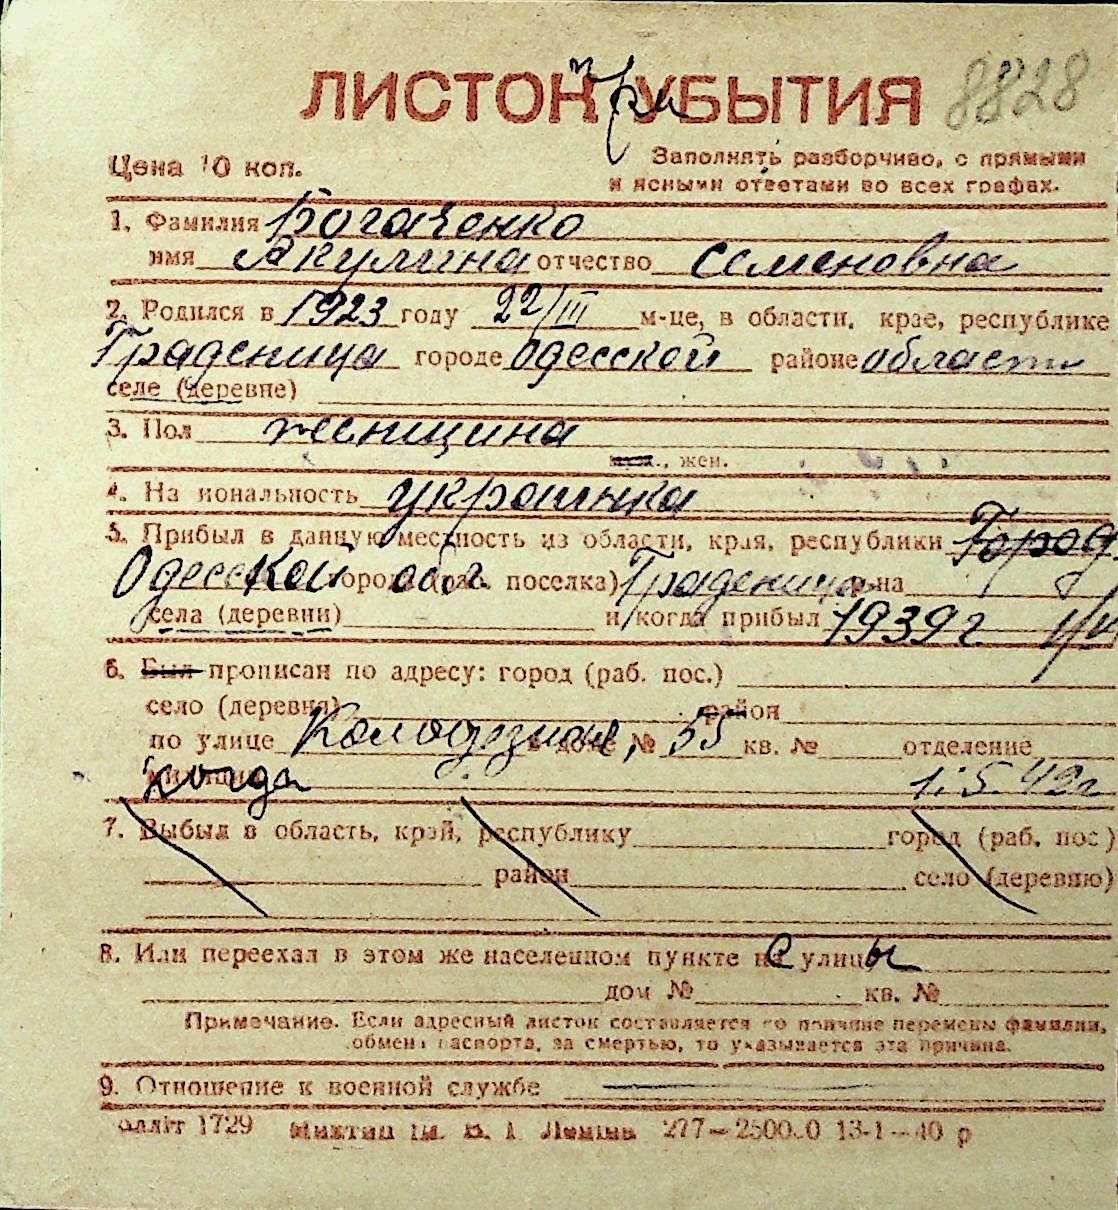 ЛИСТОК при УБЫТИЯ 8828
Цена 10 коп.
Заполнять разборчиво, с прямыми
и ясными ответами во всех графах.
1. Фамилия Богаченко
имя Акулина отчество Семеновна
2. Родился в 1923 году 22/III м-це, в области, крае, республике
Граденица городе Одесской районе области
селе (деревне)
3. Пол женщина
муж., жен.
4. Национальность украинка
5. Прибыл в данную местность из области, края, республики Город
Одесской города обл. (раб. поселка) Граденица р-на
села (деревни) и когда прибыл 1939 г
6. Был прописан по адресу: город (раб. пос.)
село (деревня) район
по улице Колодезная, в доме № 55 кв. № отделение
милиции когда 1.5.42 г
7. Выбыл в область, край, республику город (раб. пос.)
район село (деревню)
8. Или переехал в этом же населенном пункте на с улицы
дом № кв. №
Примечание. Если адресный листок составляется по причине перемены фамилии,
обмена паспорта, за смертью, то указывается эта причина.
9. Отношение к военной службе
1729 277—2500 0 13-1—40 р